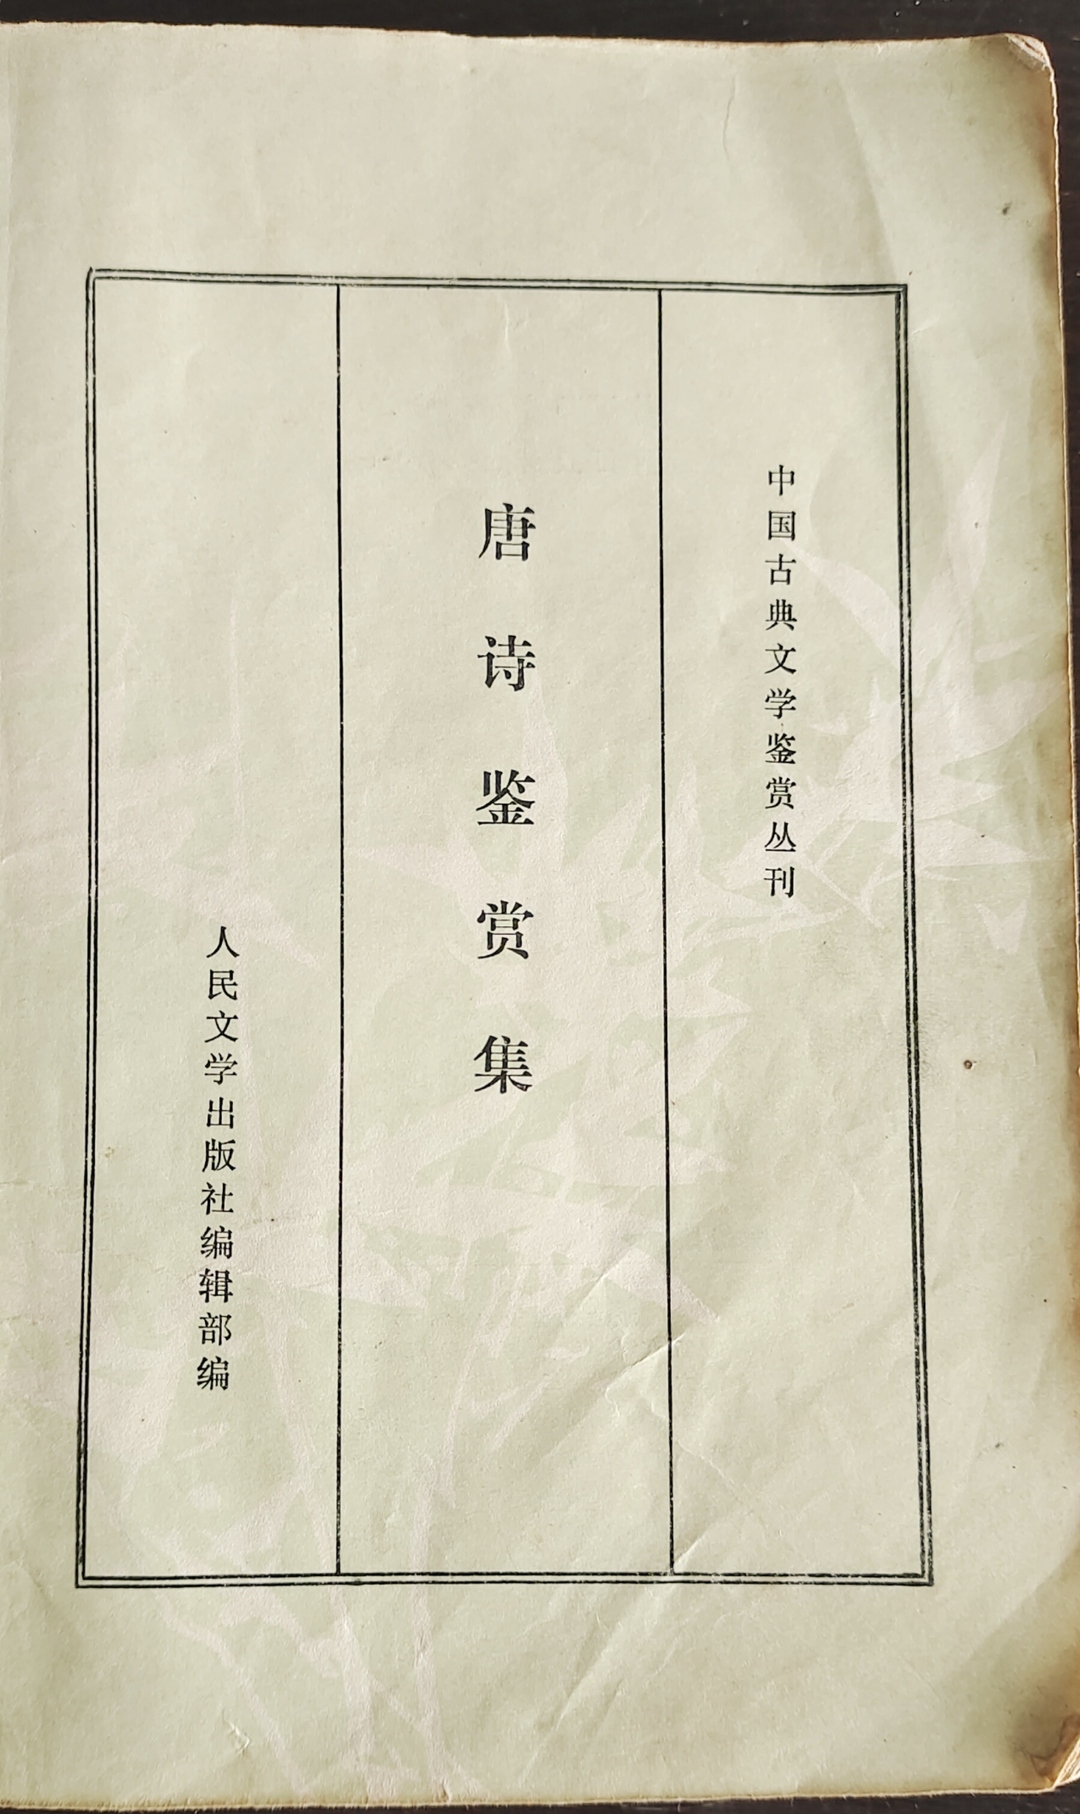 中国古典文学鉴赏丛刊
唐诗鉴赏集
人民文学出版社编辑部编